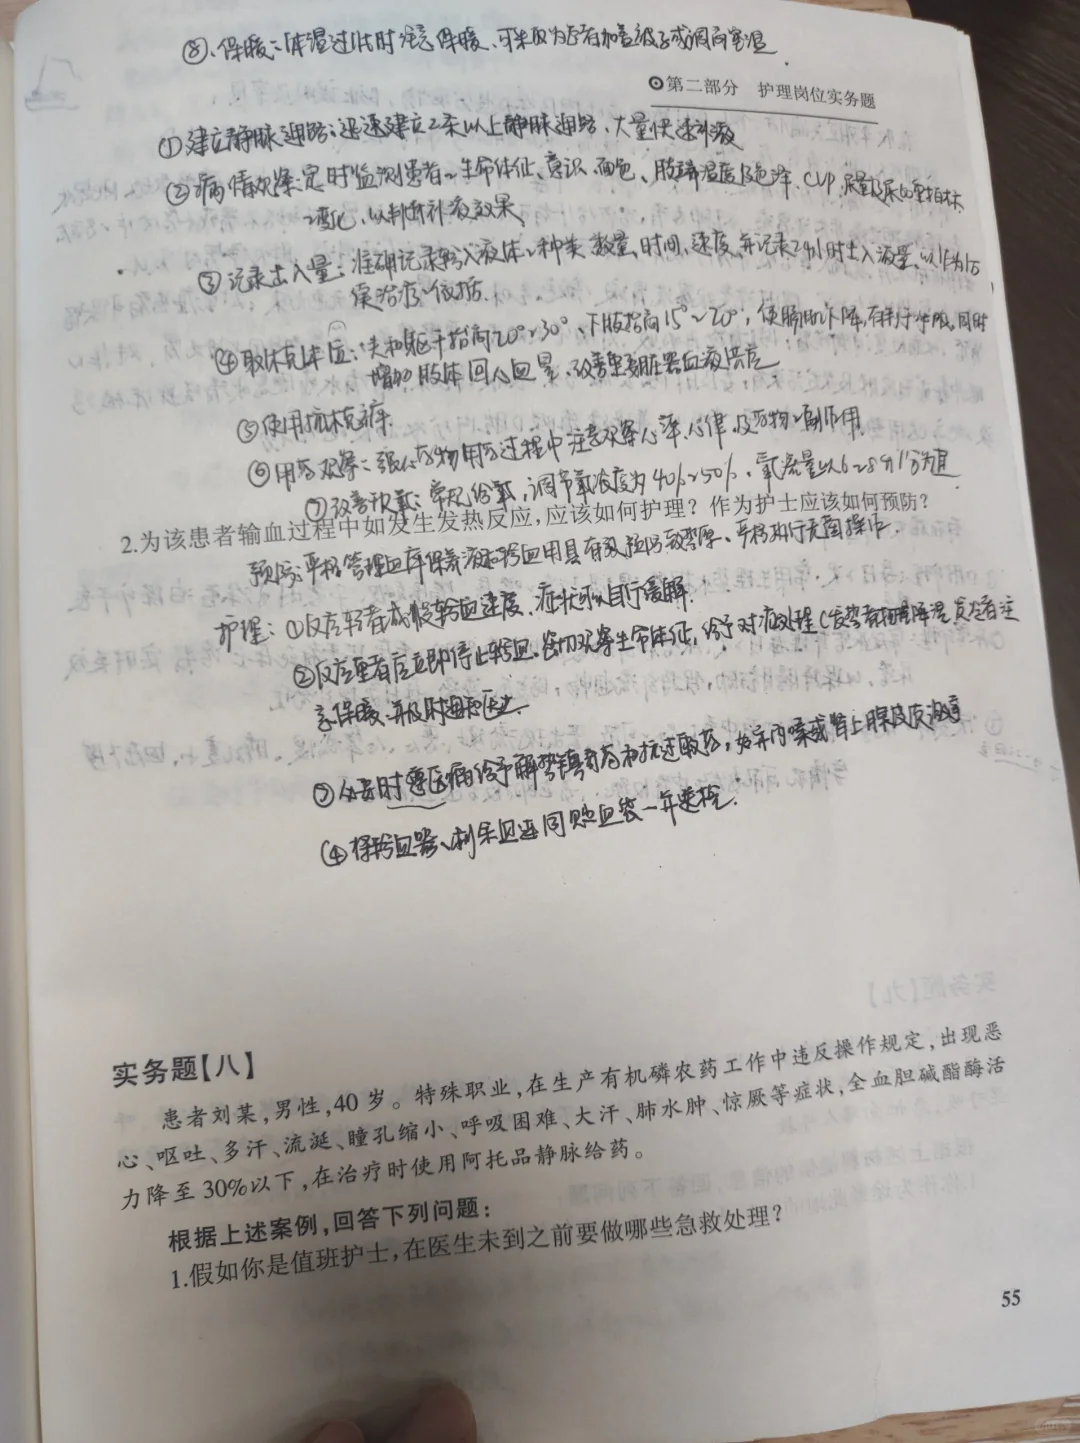 ⑧.保暖：体温过低时注意保暖、可采取为患者加盖被子或调高室温
第二部分 护理岗位实务题
①建立静脉通路：迅速建立2条以上静脉通路、大量快速补液
②病情观察：定时监测患者~生命体征、意识、面色、肢端温度及色泽、CVP、尿量及尿比重指标
变化，以判断补液效果
③记录出入量：准确记录输入液体~种类、数量、时间、速度、并记录24小时出入液量，以作为后
续治疗~依据.
④取休克体位：头和躯干抬高20°~30°、下肢抬高15°~20°，使膈肌下降，有利于呼吸，同时
增加肢体回心血量、改善重要脏器血液供应
⑤使用抗休克裤.
⑥用药观察：强心药物用药过程中注意观察心率、心律、及药物~副作用.
⑦改善缺氧：常规给氧，调节氧浓度为40%~50%、氧流量以6~8升/分为宜
2.为该患者输血过程中如发生发热反应,应该如何护理？作为护士应该如何预防？
预防：严格管理血库保养液和输血用具有效预防致热原、严格执行无菌操作.
护理：①反应轻者减慢输血速度、症状可以自行缓解.
②反应重者应立即停止输血、密切观察生命体征，给予对症处理（发热者物理降温、寒战者注
意保暖、并及时通知医生
③必要时遵医嘱给予解热镇痛药和抗过敏药，如异丙嗪或肾上腺皮质激素
④将输血器、剩余血连同贮血袋一并送检.
实务题【八】
患者刘某,男性,40岁。特殊职业,在生产有机磷农药工作中违反操作规定,出现恶
心、呕吐、多汗、流涎、瞳孔缩小、呼吸困难、大汗、肺水肿、惊厥等症状,全血胆碱酯酶活
力降至30%以下,在治疗时使用阿托品静脉给药。
根据上述案例,回答下列问题：
1.假如你是值班护士,在医生未到之前要做哪些急救处理？
55